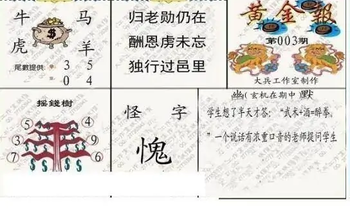 牛 马
虎 羊
尾數提供: 3 5
0 4
归老勋仍在
酬恩虏未忘
独行过邑里
黄金報
第003期
大兵工作室制作
摇錢樹
5 9
3 1
4 6
怪 字
愧
幽(玄机在期中 默
学生想了半天才答: "武术+酒=醉拳。
"一个说话有浓重口音的老师提问学生